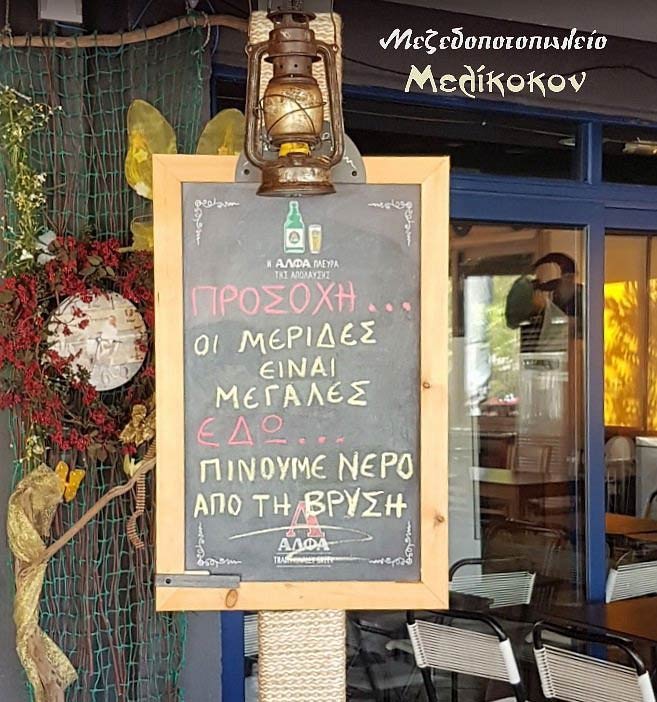 Μεζεδοποτοπωλείο
Μελίκοκον
Η ΑΛΦΑ ΠΛΕΥΡΑ
ΤΗΣ ΑΠΟΛΑΥΣΗΣ
ΠΡΟΣΟΧΗ...
ΟΙ ΜΕΡΙΔΕΣ
ΕΙΝΑΙ
ΜΕΓΑΛΕΣ
ΕΔΩ...
ΠΙΝΟΥΜΕ ΝΕΡΟ
ΑΠΟ ΤΗ ΒΡΥΣΗ
Α
ΑΛΦΑ